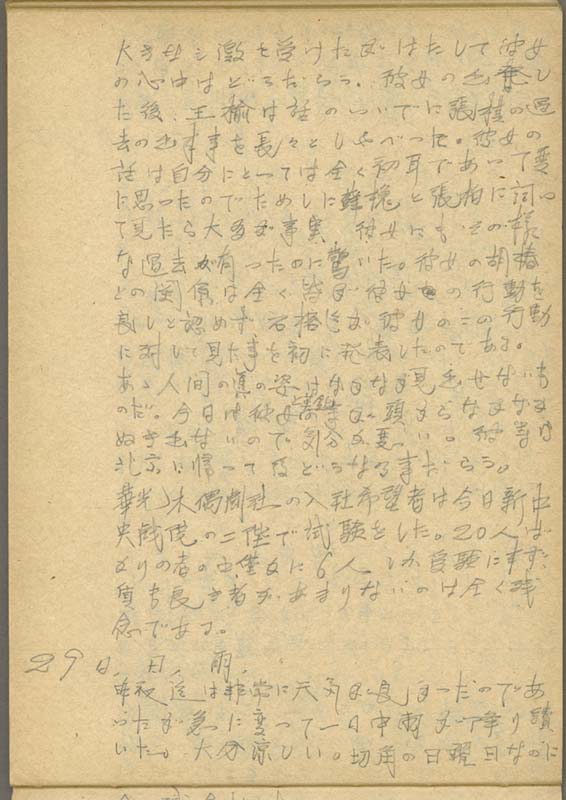 大きな シ激を受けたが はたして彼女
の心中はどうだらう。彼女の出発し
た後、王楡は話のついでに張模の過
去の出来事を長々としやべった。彼女の
話は自分にとっては全く初耳であって変
に思ったのでためしに韓槐と張柏に伺っ
て見たら大多が事実、彼女にもその様
な過去が有ったのに驚いた。彼女の胡椿
との関係は全く皆が彼女の行動を
良しと認めず 石楷 が彼女のこの行動
に対して見た事を初に発表したのである。
あゝ人間の真の姿はなかなか見出せないも
のだ。今日は彼女 事が頭からなかなか
ぬき出ないので気分が悪い。彼等は
北京に帰って後どうなる事だらう。
華光ノ木偶劇社の入社希望者は今日新中
央戯院の二階で試験をした。20人ば
かりの者の中僅かに6人しか受験に来ず、
質も良き者があまりないのは全く残
念である。
29日、日、雨、
昨夜迄は非常に天気が良かったのであ
いたが急に変って一日中雨が降り続
いた。大分涼しい。切角の日曜日なのに